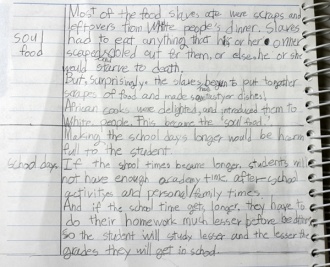 Most of the food slaves ate were scraps and
leftovers from White people's dinner. Slaves
had to eat anything that his or her owner
soul food
out for them, or else he or she
would starve to death.
But, surprisingly, the slaves began to put together
scraps of food and made dishes!
African cooks were delighted, and introduced them to
White people. This became the "soul food".
Making the school days longer would be harm
ful to the student.
School days
If the school times became longer, students will
not have enough academy time, after-school
activities and personal/family times.
And if the school time gets longer, they have to
do their homework much lesser before bedtime
So the student will study lesser and the lesser the
grades they will get in school.